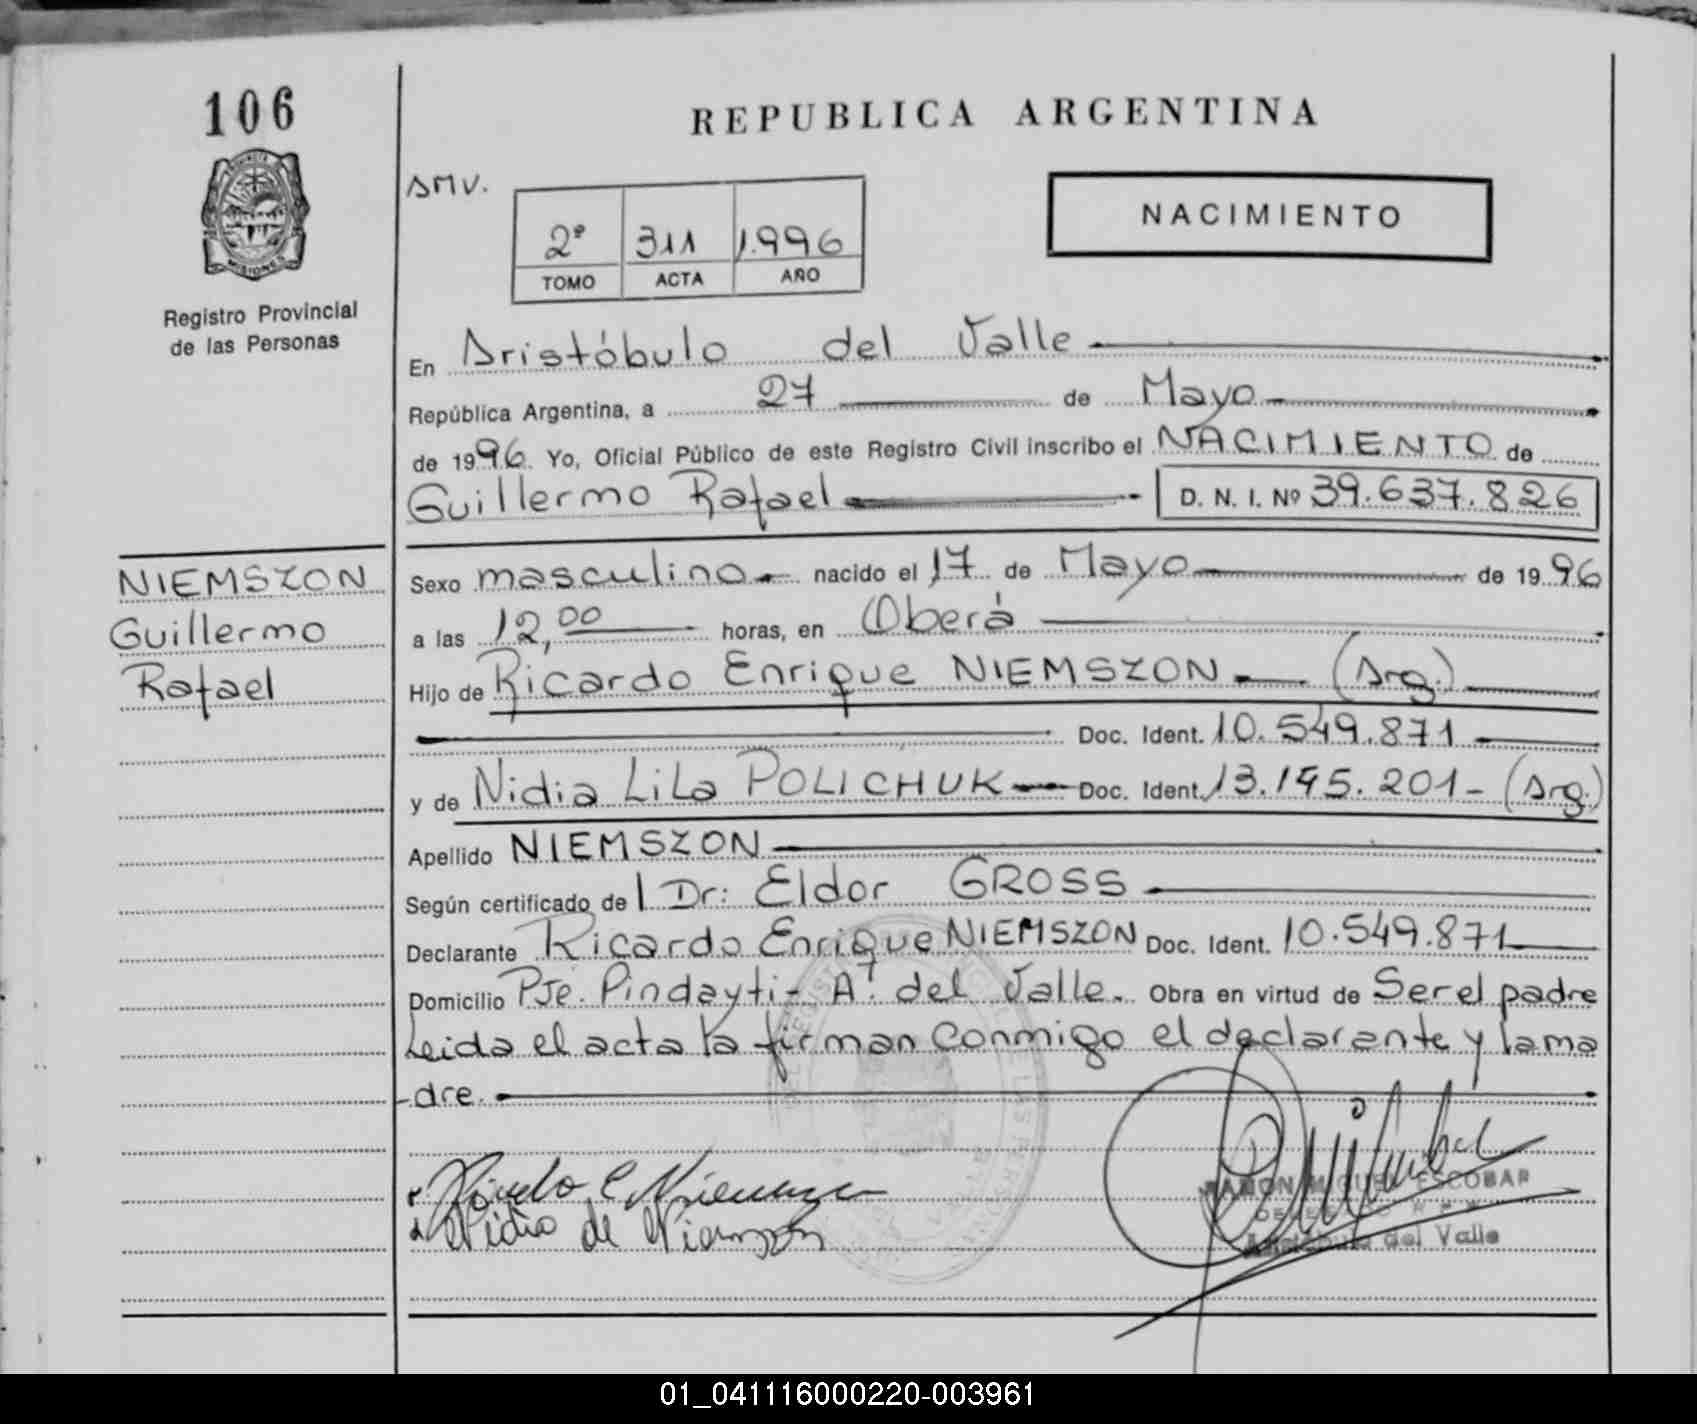 106
REPUBLICA ARGENTINA
MISIONES
Registro Provincial
de las Personas
AMV.
2º 311 1.996
TOMO ACTA AÑO
NACIMIENTO
En Aristóbulo del Valle
República Argentina, a 27 de Mayo
de 1996. Yo, Oficial Público de este Registro Civil inscribo el NACIMIENTO de
Guillermo Rafael D. N. I. Nº 39.637.826
NIEMSZON
Guillermo
Rafael
Sexo masculino nacido el 17 de Mayo de 1996
a las 12,00 horas, en Oberá
Hijo de Ricardo Enrique NIEMSZON (Arg.)
Doc. Ident. 10.549.871
y de Nidia Lila POLICHUK Doc. Ident. 13.195.201- (Arg.)
Apellido NIEMSZON
Según certificado de l Dr: Eldor GROSS
Declarante Ricardo Enrique NIEMSZON Doc. Ident. 10.549.871
Domicilio Pje. Pindayti- A. del Valle. Obra en virtud de Ser el padre
Leida el acta la firman conmigo el declarante y la ma
-dre.
Nidia de Niemszon
RAMON MIGUEL ESCOBAR
Aristobulo del Valle
01_041116000220-003961